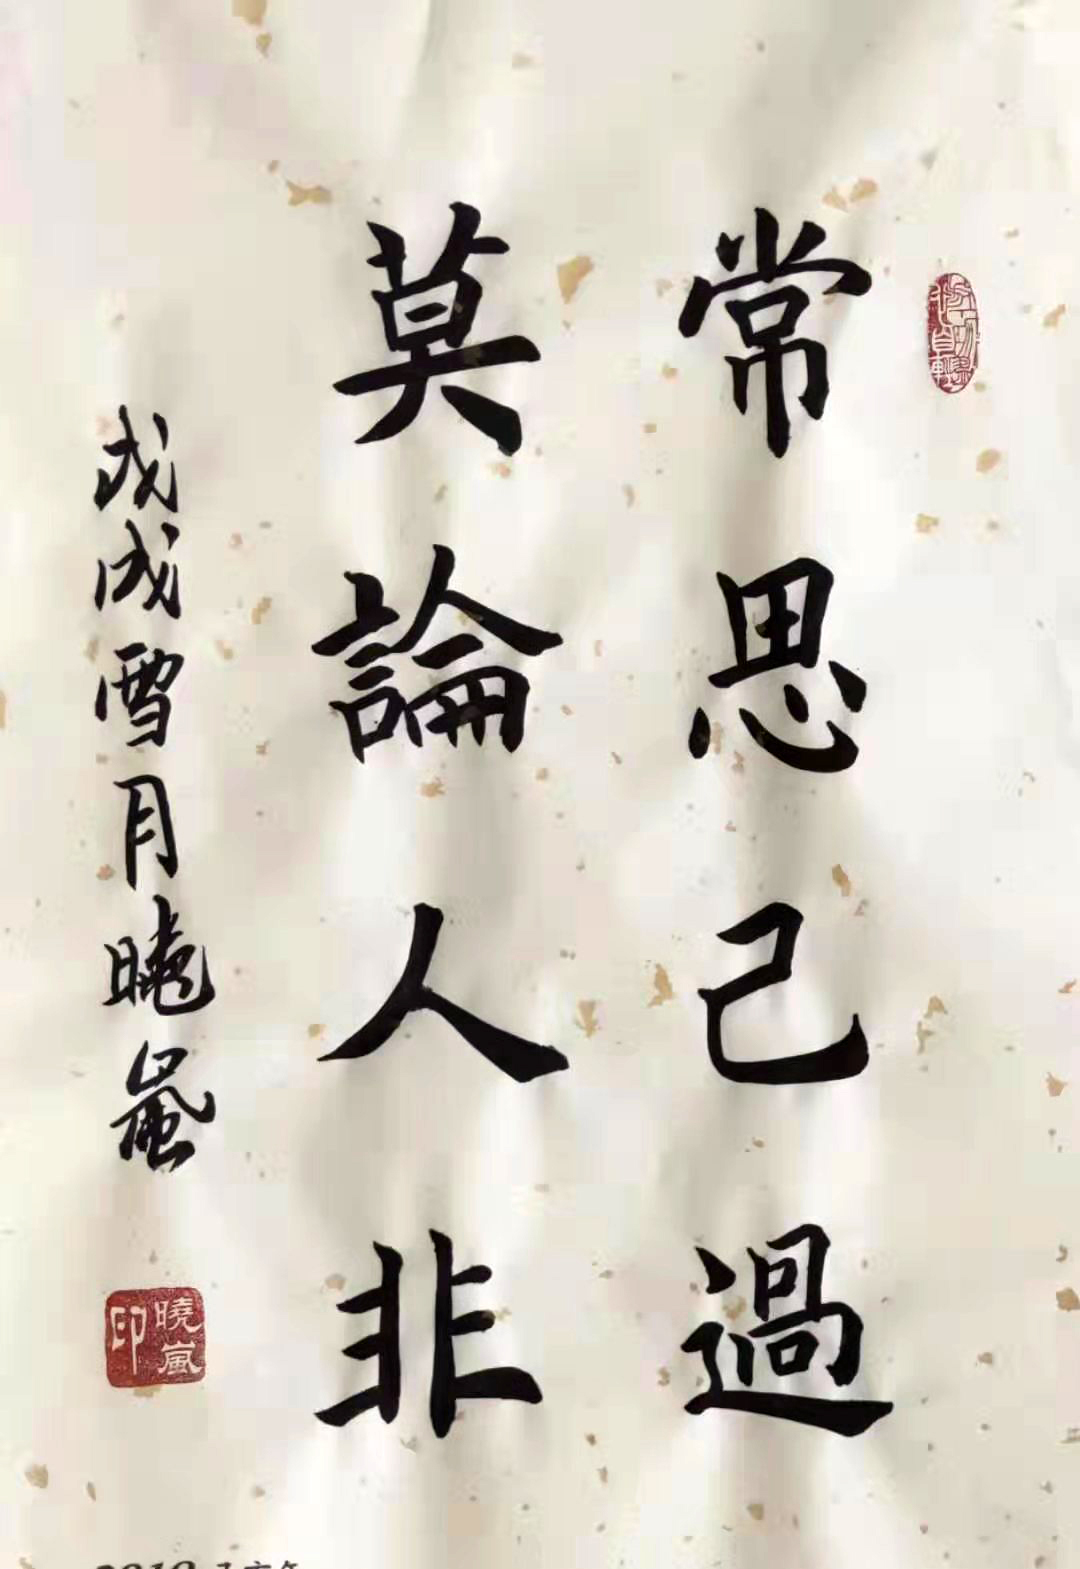 常思己過
莫論人非
戊戌雪月曉嵐
曉嵐印